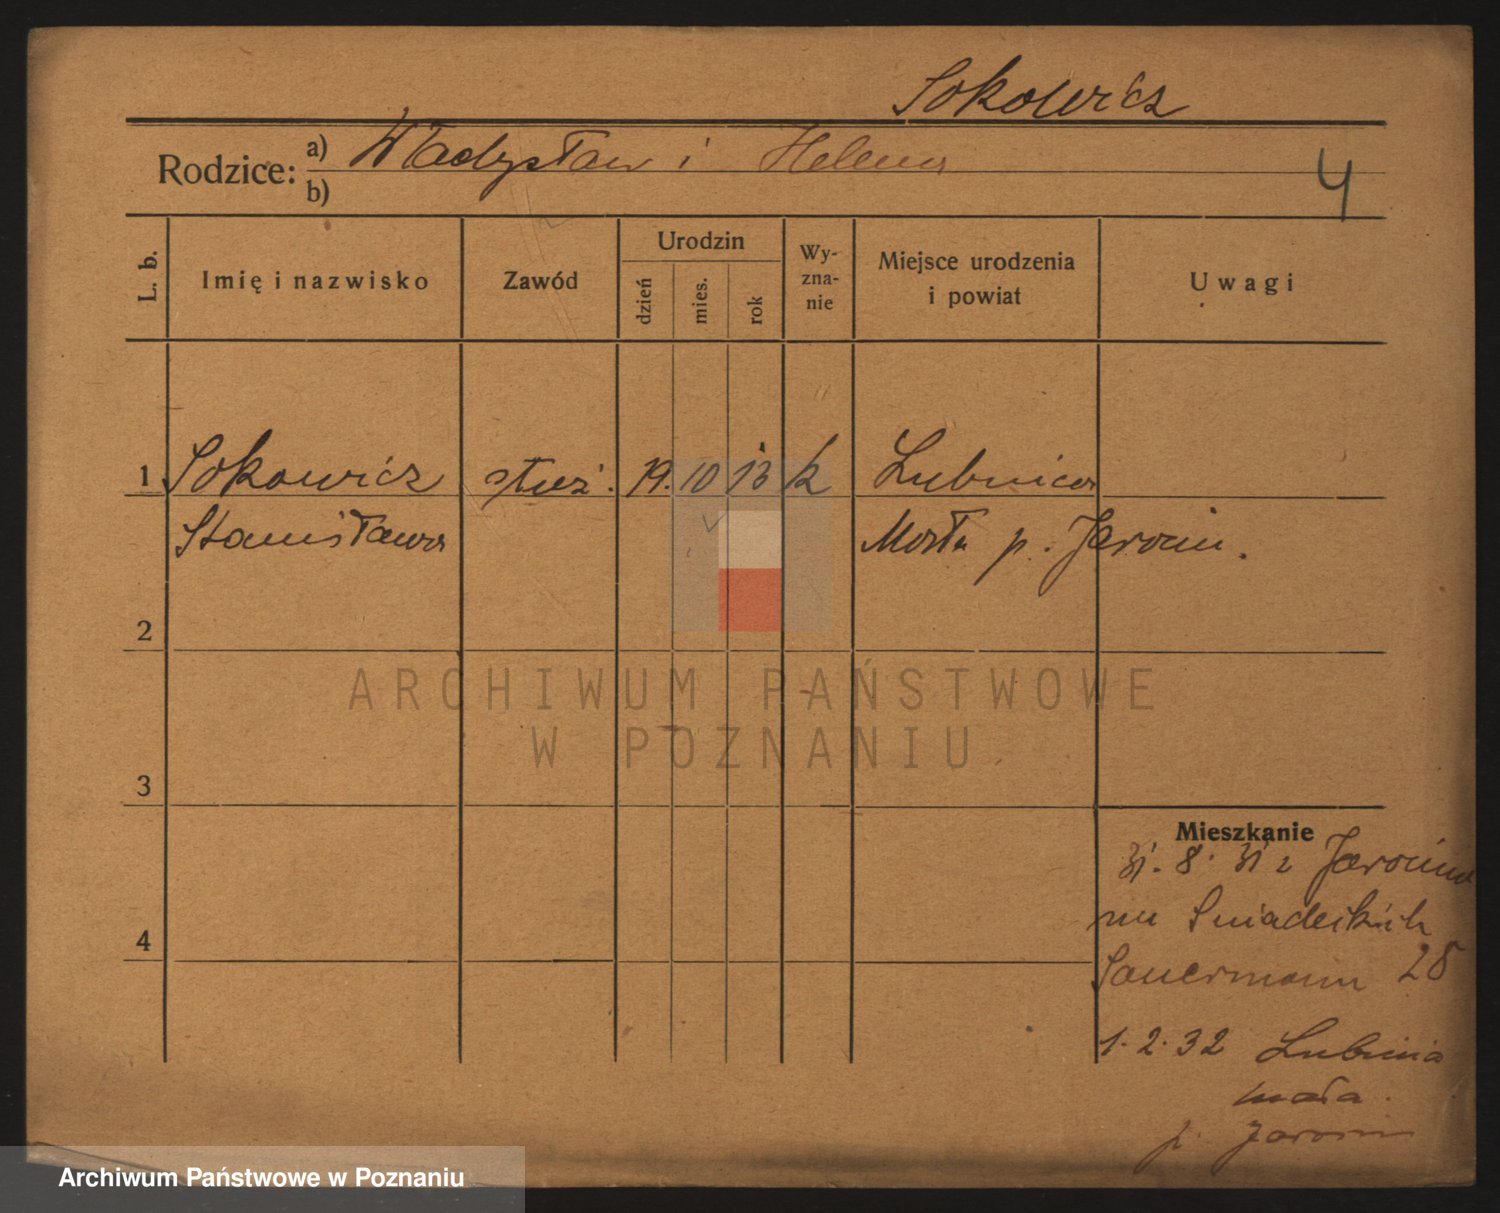 Sokowicz
Rodzice: a) Władysław i Helena
b)
4
L. b.
Imię i nazwisko
Zawód
Urodzin
dzień
mies.
rok
Wy-
zna-
nie
Miejsce urodzenia
i powiat
Uwagi
1 Sokowicz służ. 19. 10 13 k Lubinica
Stanisława Mała p. Jarocin.
2
ARCHIWUM PAŃSTWOWE
W POZNANIU
3
Mieszkanie
31. 8. 31 z Jarocina
na Śniadeckich
Sauermann 28
4
1. 2. 32 Lubinia
mała
p. Jarocin
Archiwum Państwowe w Poznaniu